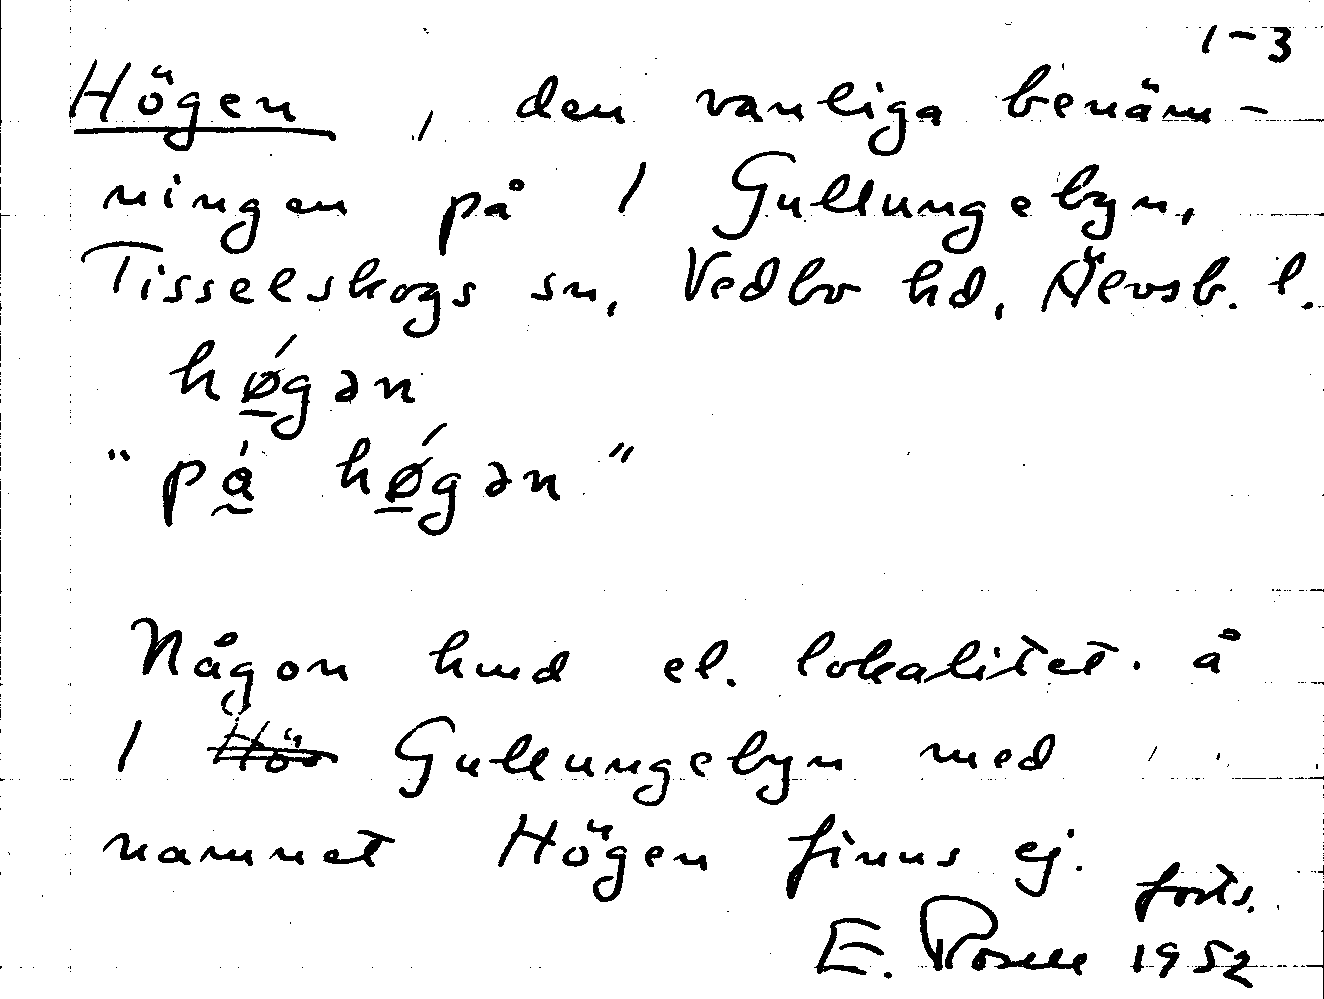 1-3
Högen, den vanliga benäm-
ningen på 1 Gullungebyn,
Tisselskogs sn, Vedbo hd, Älvsb. l.
hǿgən
"på hǿgən"
Någon hmd el. lokalitet å
1 Hö Gullungebyn med
namnet Högen finns ej.
forts.
E. Rosell 1952